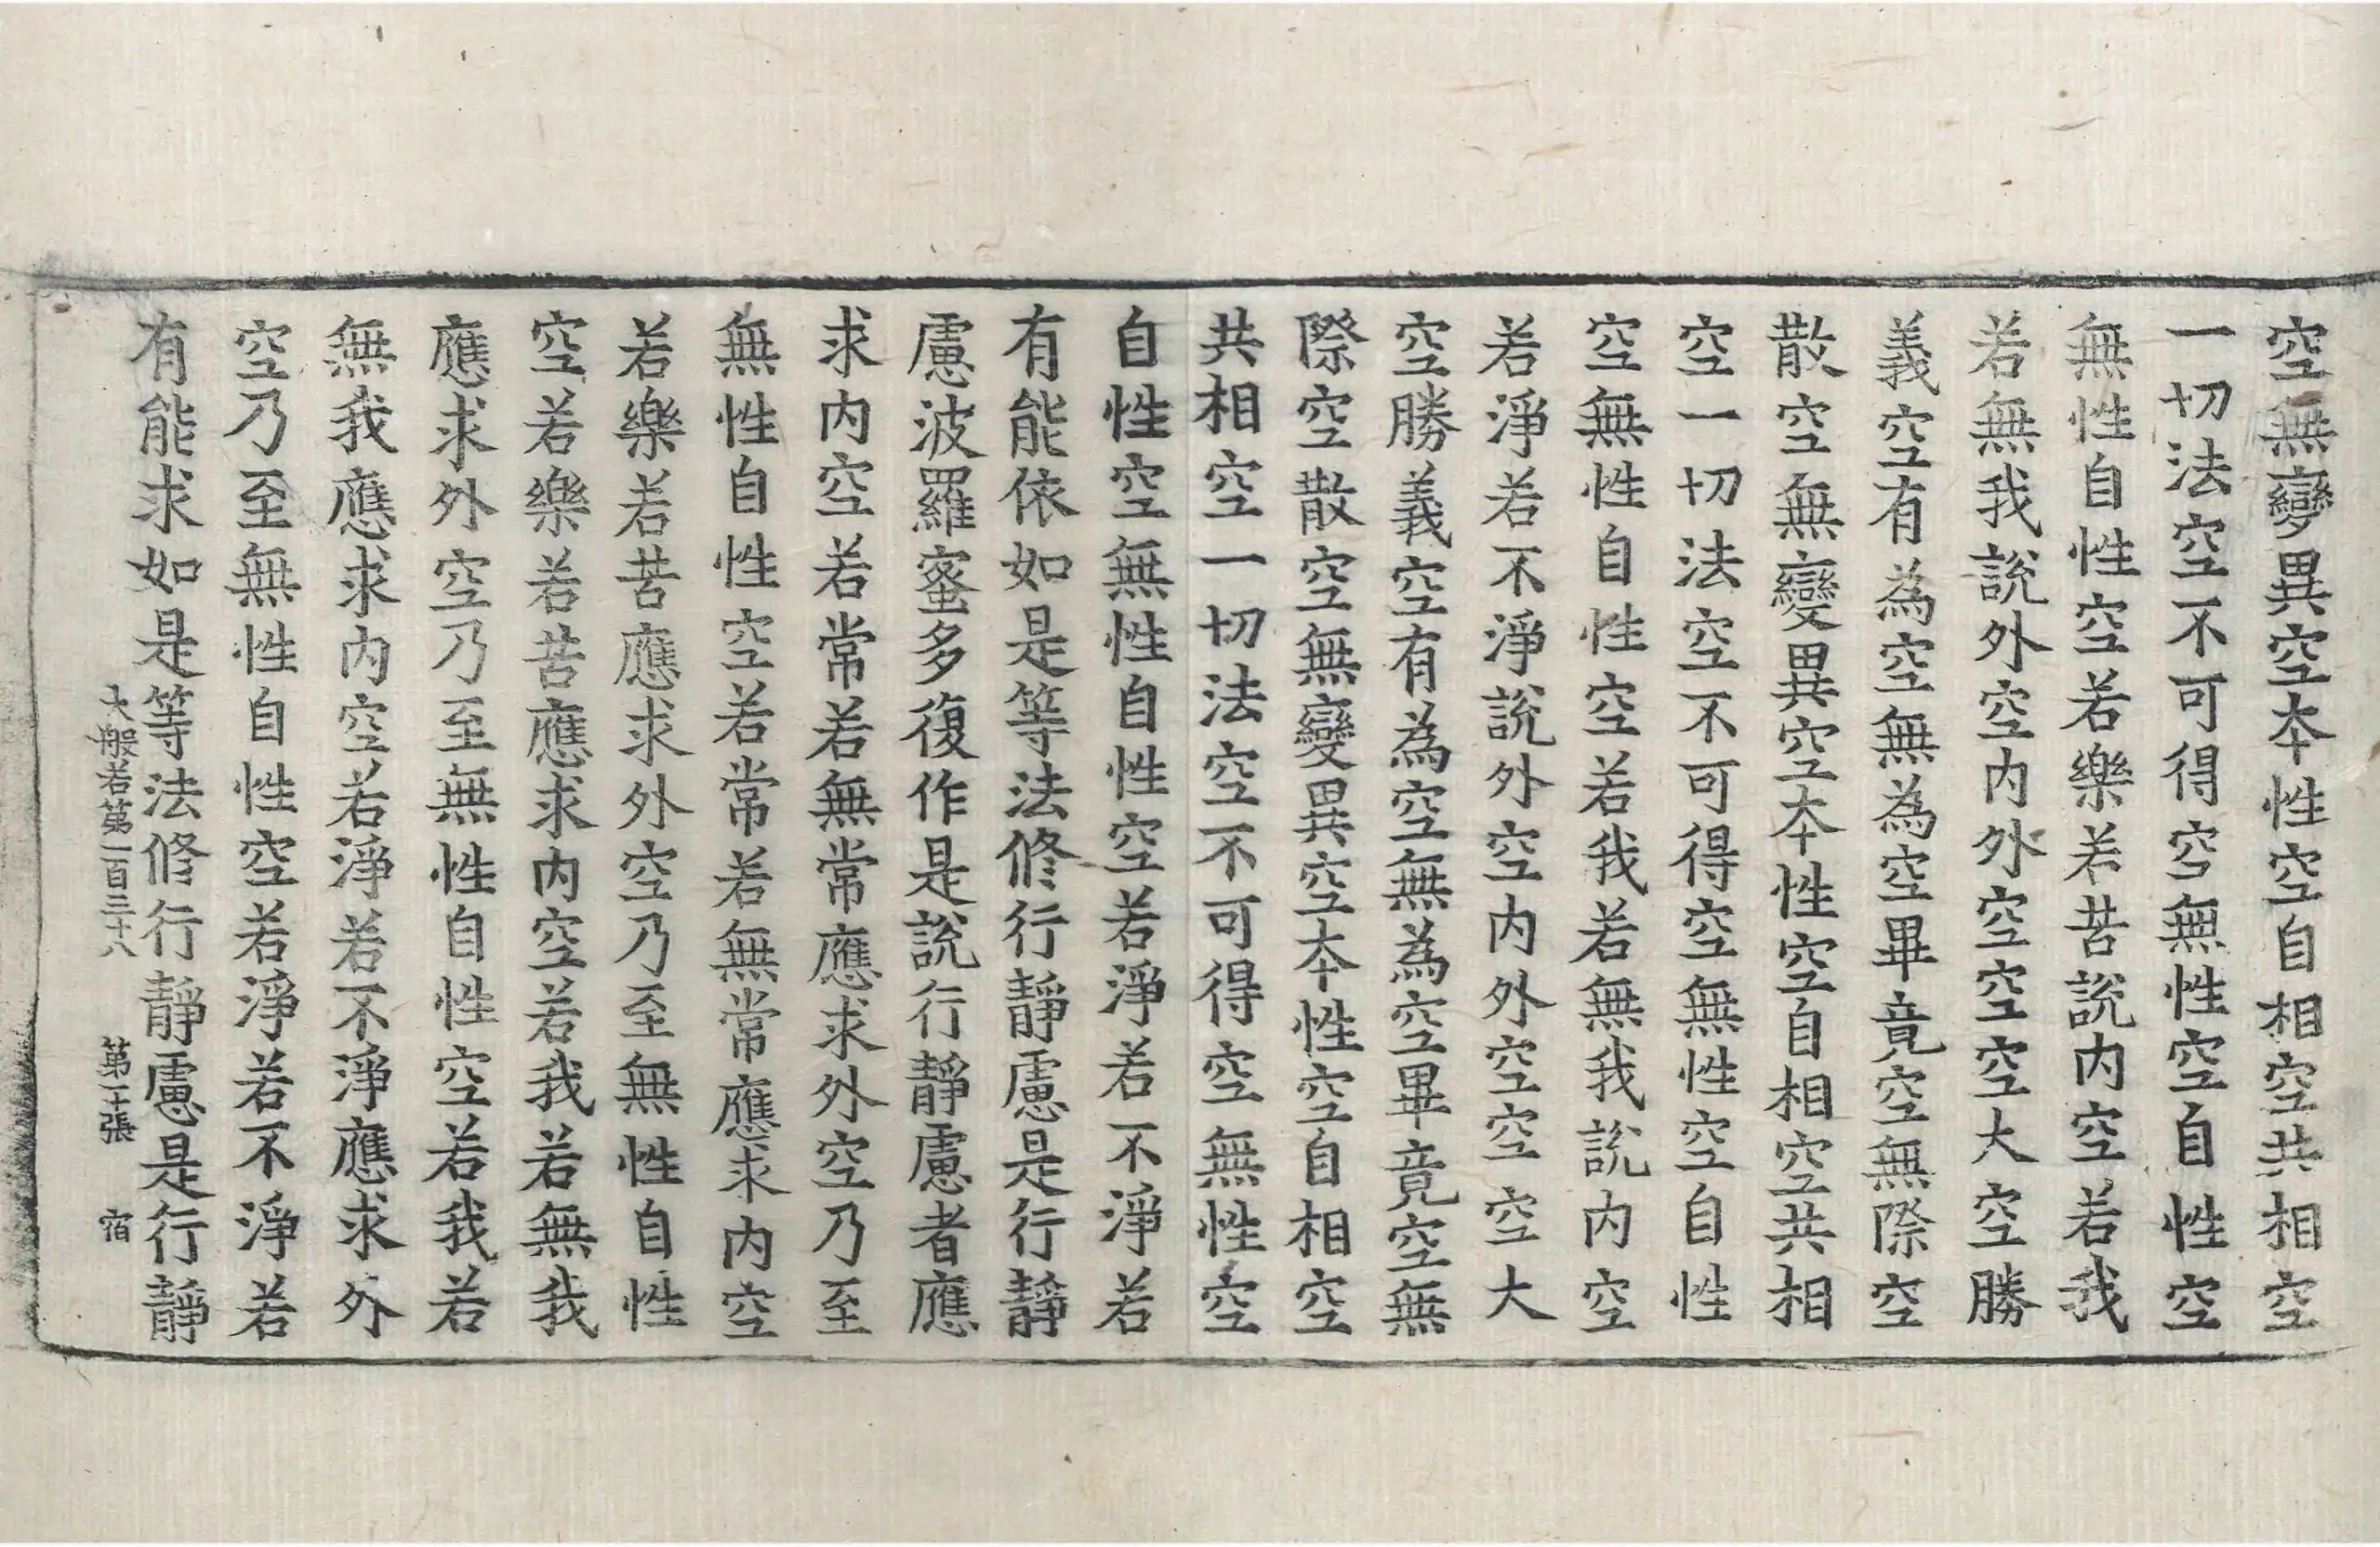 空無變異空本性空自相空共相空
一切法空不可得空無性空自性空
無性自性空若樂若苦說內空若我
若無我說外空內外空空空大空勝
義空有為空無為空畢竟空無際空
散空無變異空本性空自相空共相
空一切法空不可得空無性空自性
空無性自性空若我若無我說內空
若淨若不淨說外空內外空空空大
空勝義空有為空無為空畢竟空無
際空散空無變異空本性空自相空
共相空一切法空不可得空無性空
自性空無性自性空若淨若不淨若
有能依如是等法修行靜慮是行靜
慮波羅蜜多復作是說行靜慮者應
求內空若常若無常應求外空乃至
無性自性空若常若無常應求內空
若樂若苦應求外空乃至無性自性
空若樂若苦應求內空若我若無我
應求外空乃至無性自性空若我若
無我應求內空若淨若不淨應求外
空乃至無性自性空若淨若不淨若
有能求如是等法修行靜慮是行靜
大般若第一百三十八 第二十張 宿